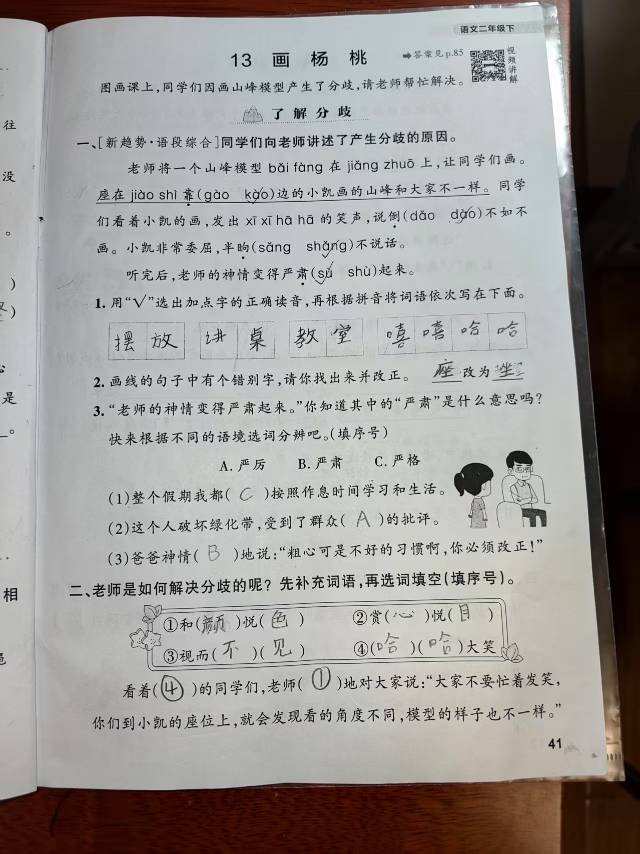 语文二年级下
13 画杨桃
➡答案见p.85
视频讲解
图画课上,同学们因画山峰模型产生了分歧,请老师帮忙解决。
了解分歧
一、[新趋势·语段综合]同学们向老师讲述了产生分歧的原因。
老师将一个山峰模型 bǎi fàng 在 jiǎng zhuō 上,让同学们画。
座在 jiào shì 靠(gào kào)边的小凯画的山峰和大家不一样。同学
们看着小凯的画,发出 xī xī hā hā 的笑声,说倒(dǎo dào)不如不
画。小凯非常委屈,半晌(sǎng shǎng)不说话。
听完后,老师的神情变得严肃(sù shù)起来。
1. 用“√”选出加点字的正确读音,再根据拼音将词语依次写在下面。
摆放 讲桌 教室 嘻嘻哈哈
2. 画线的句子中有个错别字,请你找出来并改正。 座 改为 坐
3. “老师的神情变得严肃起来。”你知道其中的“严肃”是什么意思吗?
快来根据不同的语境选词分辨吧。(填序号)
A. 严厉 B. 严肃 C. 严格
(1)整个假期我都( C )按照作息时间学习和生活。
(2)这个人破坏绿化带,受到了群众( A )的批评。
(3)爸爸神情( B )地说:“粗心可是不好的习惯啊,你必须改正!”
二、老师是如何解决分歧的呢?先补充词语,再选词填空(填序号)。
①和(颜)悦(色) ②赏(心)悦(目)
③视而(不)(见) ④(哈)(哈)大笑
看着(④)的同学们,老师(①)地对大家说:“大家不要忙着发笑,
你们到小凯的座位上,就会发现看的角度不同,模型的样子也不一样。”
41